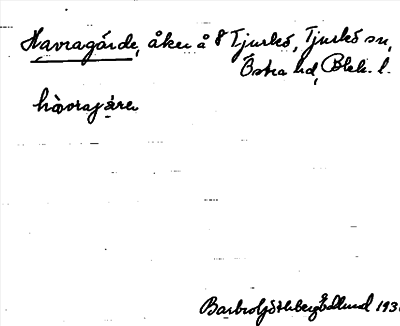 Havragärde, åker å 8 Tjurkö, Tjurkö sn,
Östra hd, Blek. l.
hàvrajáre
Barbro Göthberg Edlund 193